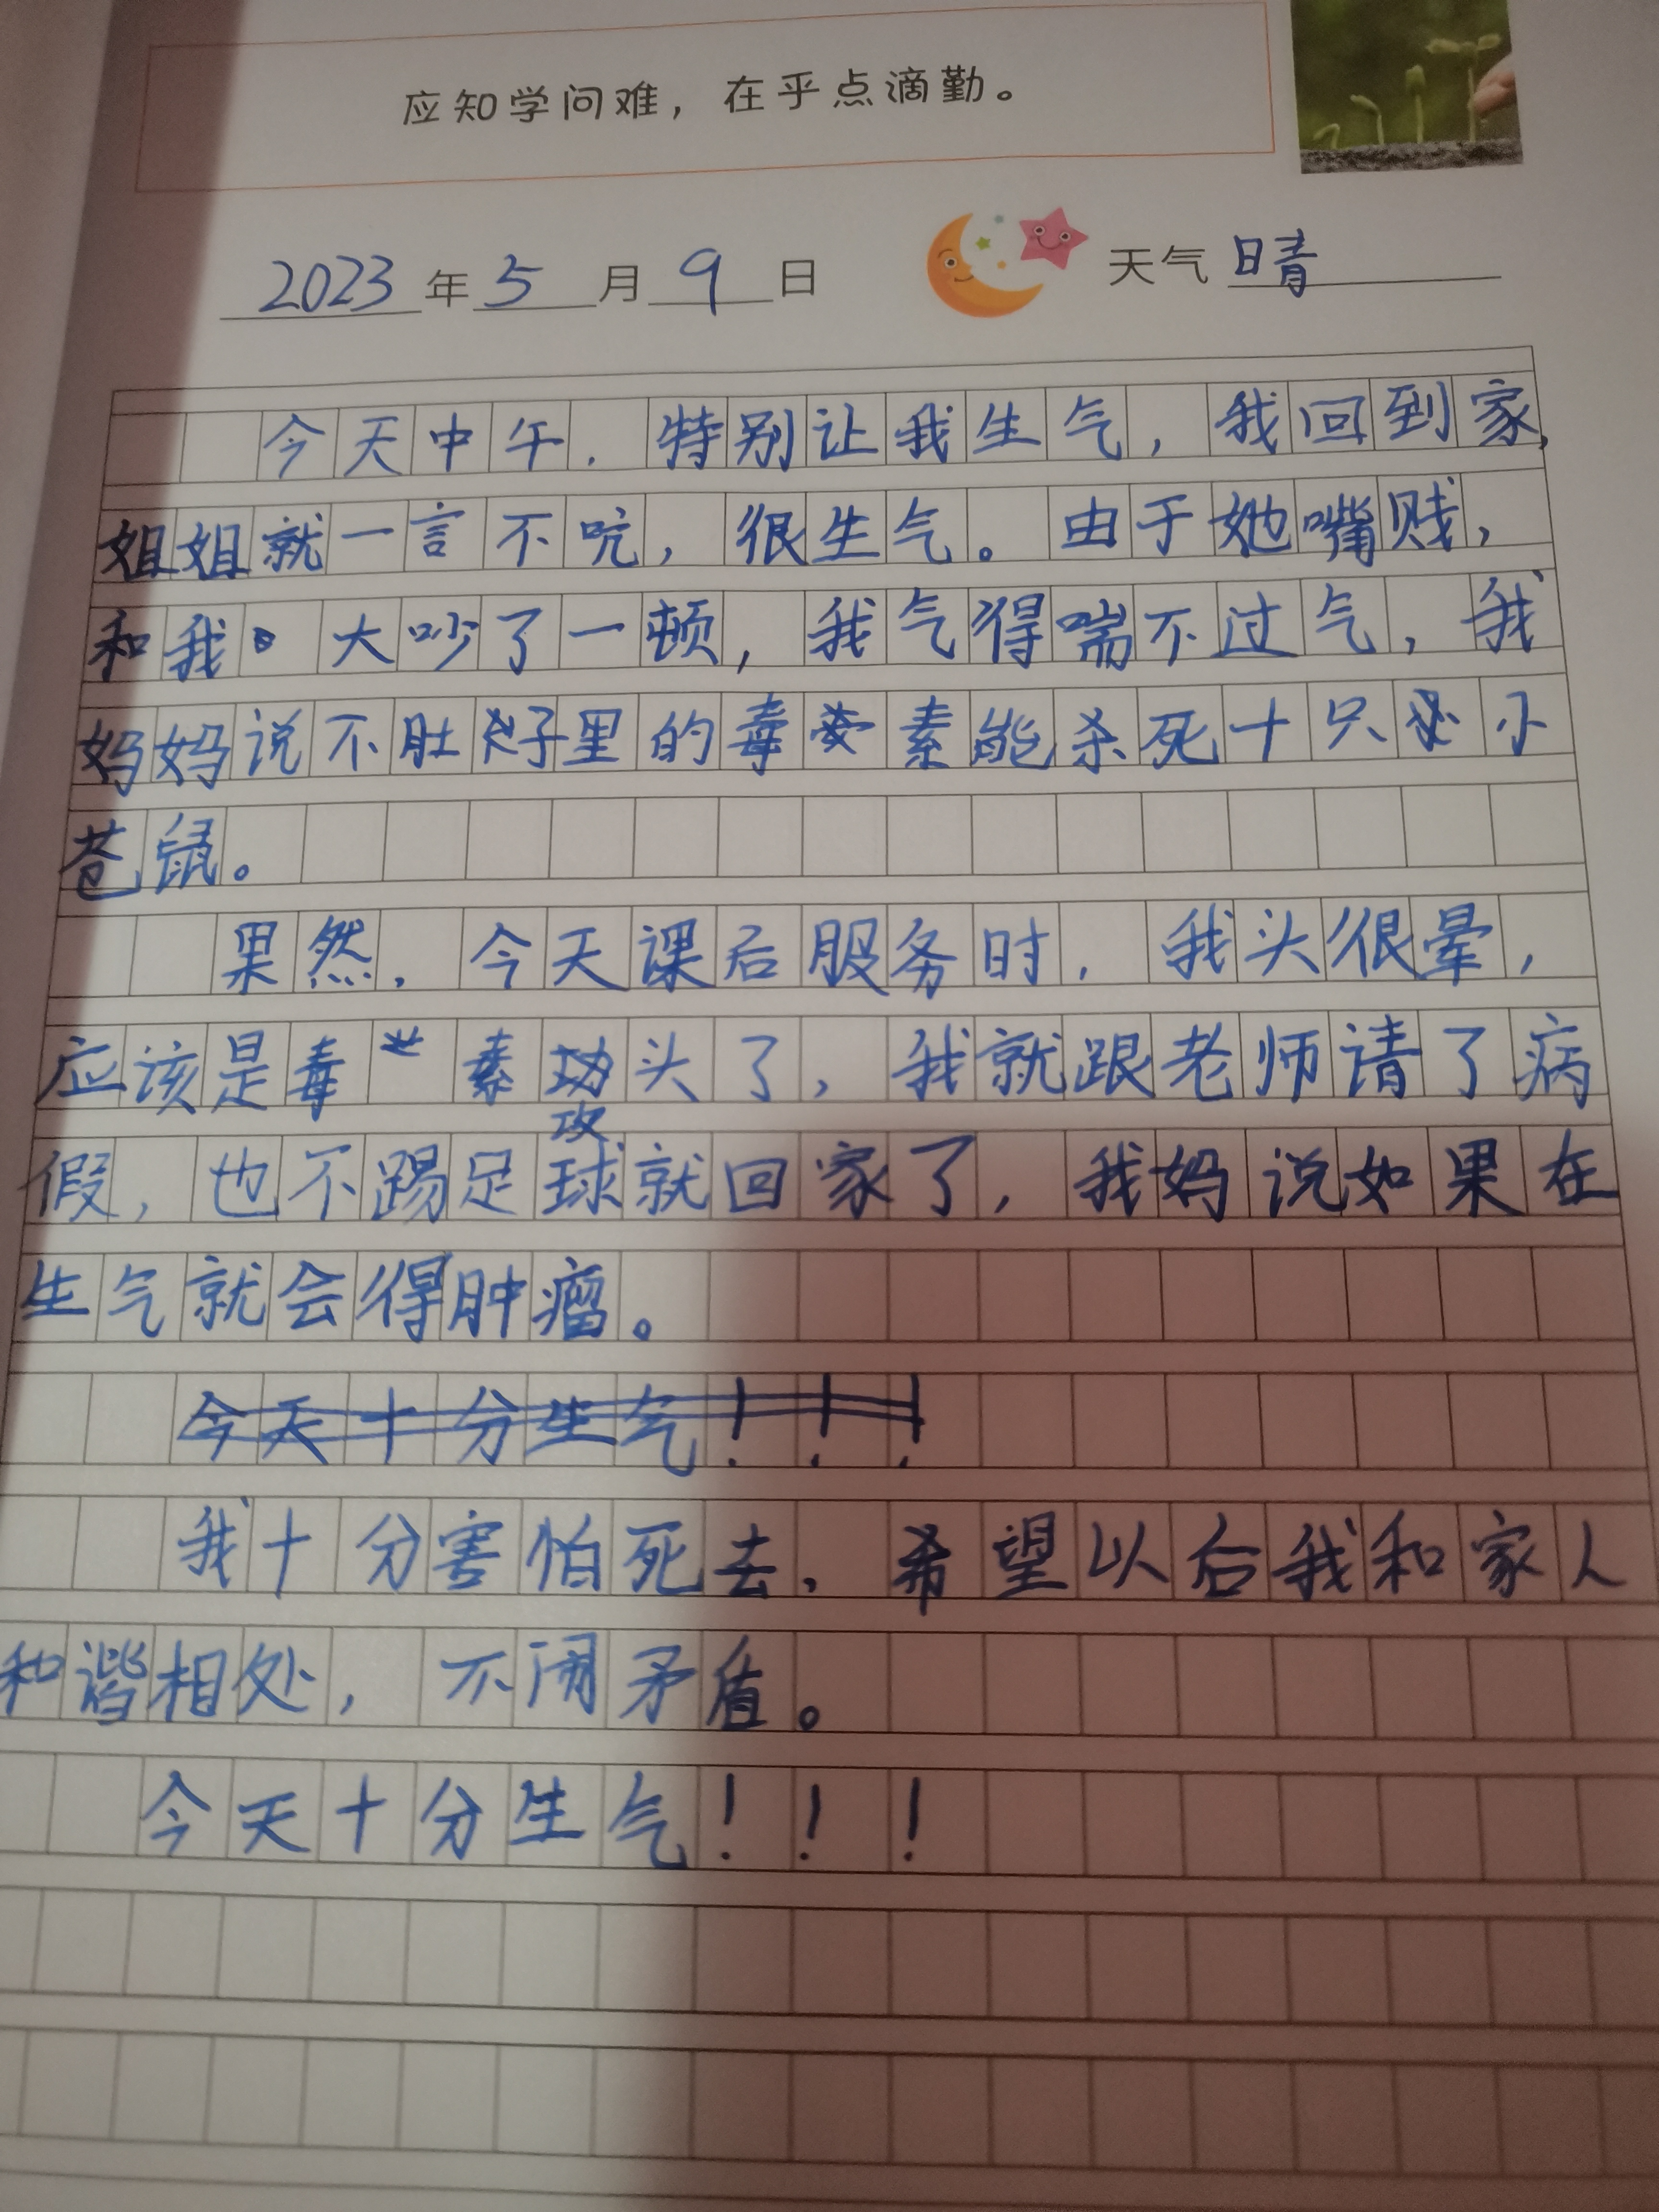 应知学问难，在乎点滴勤。
2023年5月9日 天气 晴
今天中午，特别让我生气，我回到家，
姐姐就一言不吭，很生气。由于她嘴贱，
和我大吵了一顿，我气得喘不过气，我
妈妈说不肚子里的毒素能杀死十只小
苍鼠。
果然，今天课后服务时，我头很晕，
应该是毒素功头了，我就跟老师请了病
攻
假，也不踢足球就回家了，我妈说如果在
生气就会得肿瘤。
今天十分生气！！！
我十分害怕死去，希望以后我和家人
和谐相处，不闹矛盾。
今天十分生气！！！